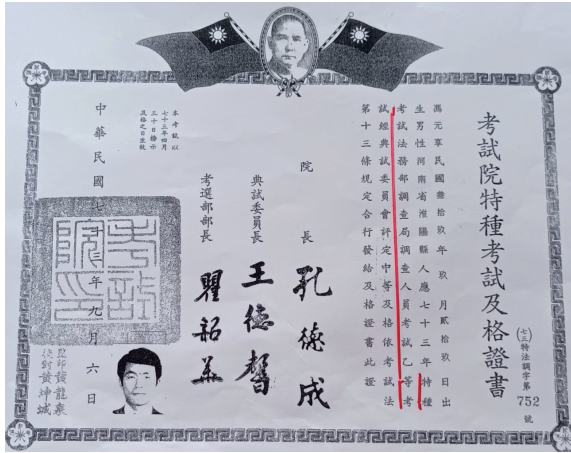 考試院特種考試及格證書
(七三)特法調字第752號
馮元享民國叁拾玖年玖月貳拾玖日出
生男性河南省淮陽縣人應七十三年特種
考試法務部調查局調查人員考試乙等考
試經典試委員會評定中等及格依考試法
第十三條規定合行發給及格證書此證
院長 孔德成
典試委員長 王德馨
考選部部長 瞿韶華
本考試以
七十三年四月
三十日榜示
及格之日生效
中華民國七十三年九月六日
考試院印
監印
校對黃坤城